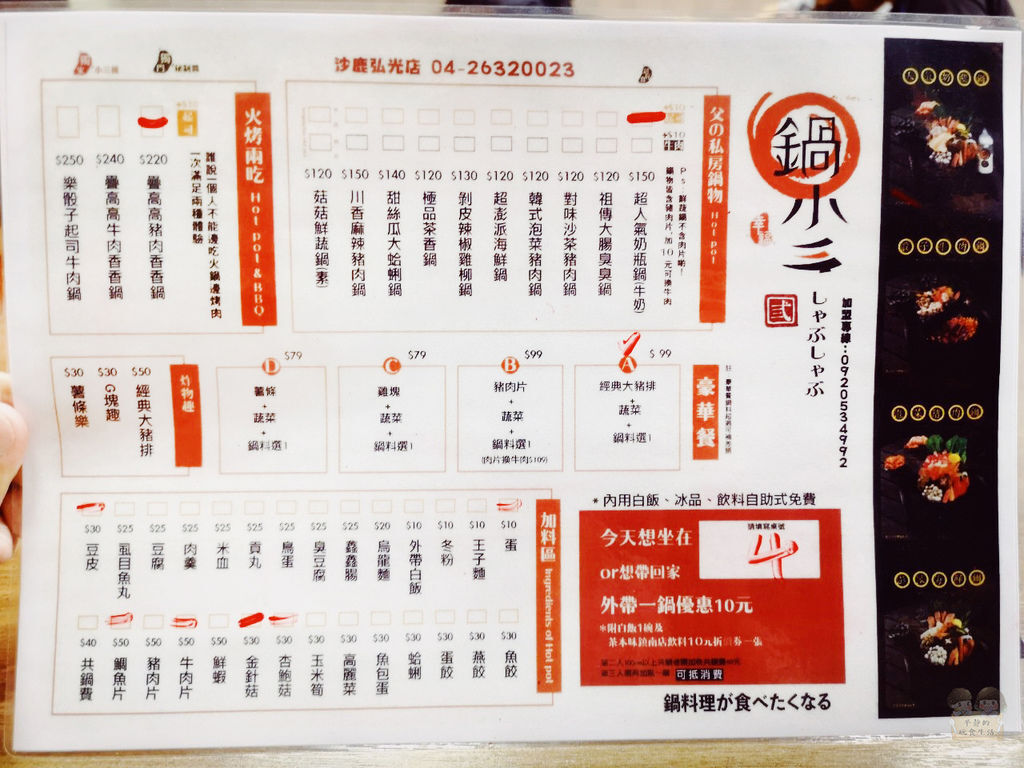 沙鹿弘光店 04-26320023
鍋小三
しゃぶしゃぶ
加盟專線：0920534992
父の私房鍋物 Hot pot
+$10
+$10 牛肉
$150 超人氣奶瓶鍋(牛奶)
$120 祖傳大腸臭臭鍋
$120 對味沙茶豬肉鍋
$120 韓式泡菜豬肉鍋
$120 超澎派海鮮鍋
$130 剝皮辣椒雞柳鍋
$120 極品茶香鍋
$140 甜絲瓜大蛤蜊鍋
$150 川香麻辣豬肉鍋
$120 菇菇鮮蔬鍋(素)
火烤兩吃 Hot pot & BBQ
誰說一個人不能邊吃火鍋邊烤肉
一次滿足兩種體驗
+$10 起司
$220 疊高高豬肉香香鍋
$240 疊高高牛肉香香鍋
$250 樂骰子起司牛肉鍋
豪華餐
A $99
經典大豬排
+
蔬菜
+
鍋料選1
B $99
豬肉片
+
蔬菜
+
鍋料選1
(肉片換牛肉$109)
C $79
雞塊
+
蔬菜
+
鍋料選1
D $79
薯條
+
蔬菜
+
鍋料選1
炸物趣
$50 經典大豬排
$30 G塊趣
$30 薯條樂
加料區 Ingredients of Hot pot
$10 蛋
$10 王子麵
$10 冬粉
$10 外帶白飯
$20 烏龍麵
$25 鑫鑫腸
$25 臭豆腐
$25 鳥蛋
$25 貢丸
$25 米血
$25 肉羹
$25 豆腐
$25 虱目魚丸
$30 豆皮
$30 魚餃
$30 燕餃
$30 蛋餃
$30 蛤蜊
$30 魚包蛋
$30 高麗菜
$30 玉米筍
$30 杏鮑菇
$30 金針菇
$50 鮮蝦
$50 牛肉片
$50 豬肉片
$50 鯛魚片
$40 共鍋費
*內用白飯、冰品、飲料自助式免費
今天想坐在
請填寫桌號
4
or想帶回家
外帶一鍋優惠10元
*附白飯1碗及
茶本味鎮南店飲料10元折價券一張
可抵消費
鍋料理が食べたくなる
平静的
玩食生活